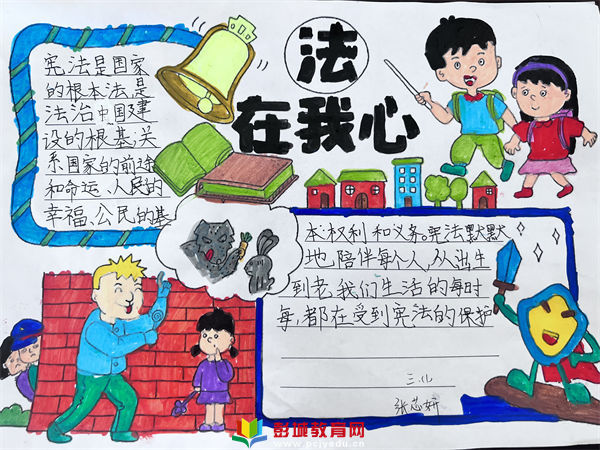 法
在我心
宪法是国家
的根本法,是
法治中国建
设的根基,关
系国家的前途
和命运、人民的
幸福、公民的基
本权利和义务。宪法默默
地陪伴每个人,从出生
到老,我们生活的每时
每,都在受到宪法的保护
三.儿
彭城教育网
www.pcjyedu.cn